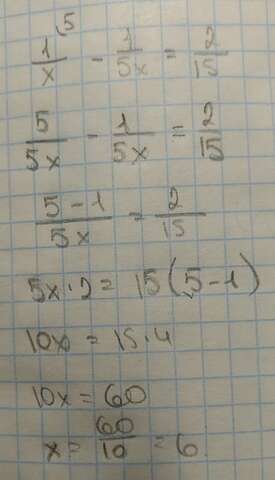 1/x (5 - 1/5x = 2/15
5/5x - 1/5x = 2/15
5-1/5x = 2/15
5x·2 = 15(5-1)
10x = 15·4
10x = 60
x = 60/10 = 6